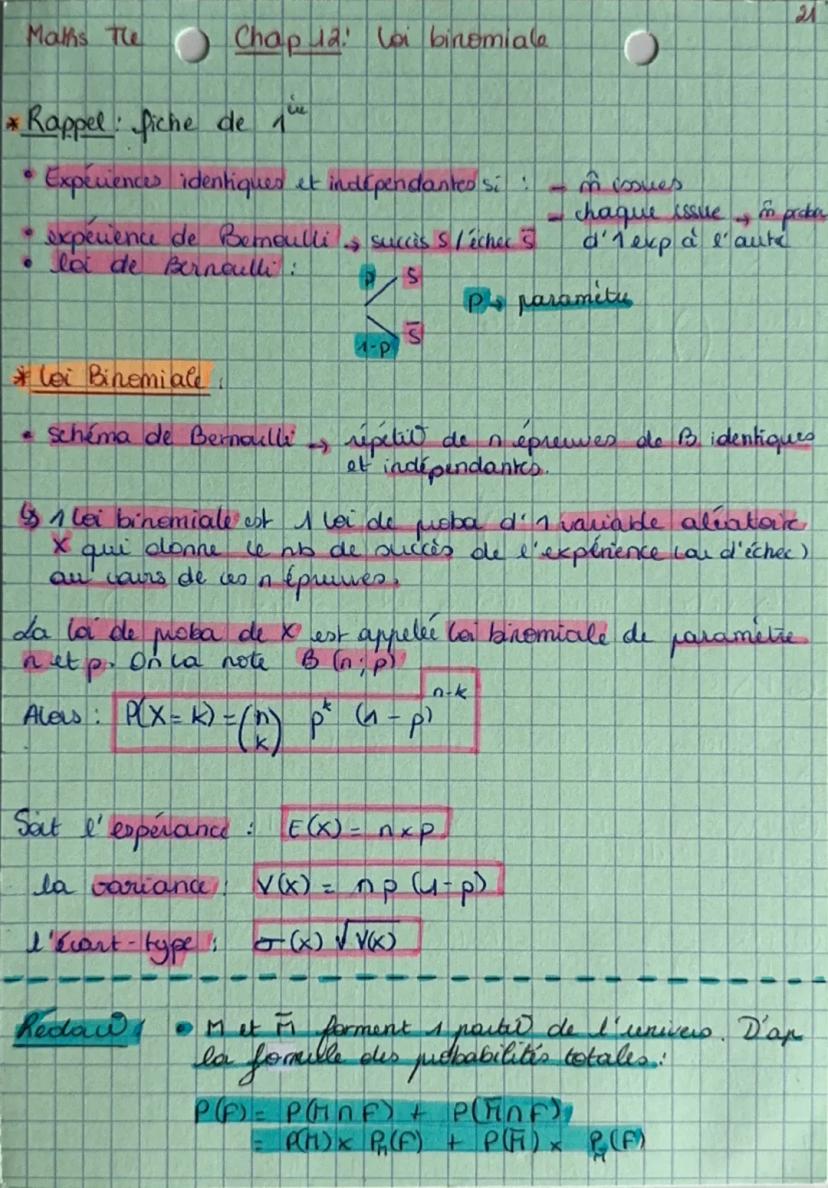 21
Maths Tle Chap 12: Loi binomiale
* Rappel : fiche de 1ière
• Expériences identiques et indépendantes si : - m̂ issues
- chaque issue → m̂ proba
• expérience de Bernoulli → succès S / échec S̅ d'1 exp à l'autre
• loi de Bernoulli :
p S
p → paramètre
1-p S̅
* Loi Binomiale :
• schéma de Bernoulli → répétit° de n épreuves de B identiques
et indépendantes.
↳ 1 loi binomiale est 1 loi de proba d'1 variable aléatoire
X qui donne le nb de succès de l'expérience (ou d'échec)
au cours de ces n épreuves.
La loi de proba de X est appelée loi binomiale de paramètre
n et p. On la note B (n ; p)
Alors : P(X = k) = (n k) p^k (1 - p)^n-k
Soit l'espérance : E(X) = n x p
la variance : V(X) = n p (1-p)
l'écart-type : σ(x) √V(X)
Rédact° : • M et M̅ forment 1 partit° de l'univers. D'ap
la formule des probabilités totales :
P(F) = P(M ∩ F) + P(M̅ ∩ F)
= P(M) x P_M(F) + P(M̅) x P_M̅(F)